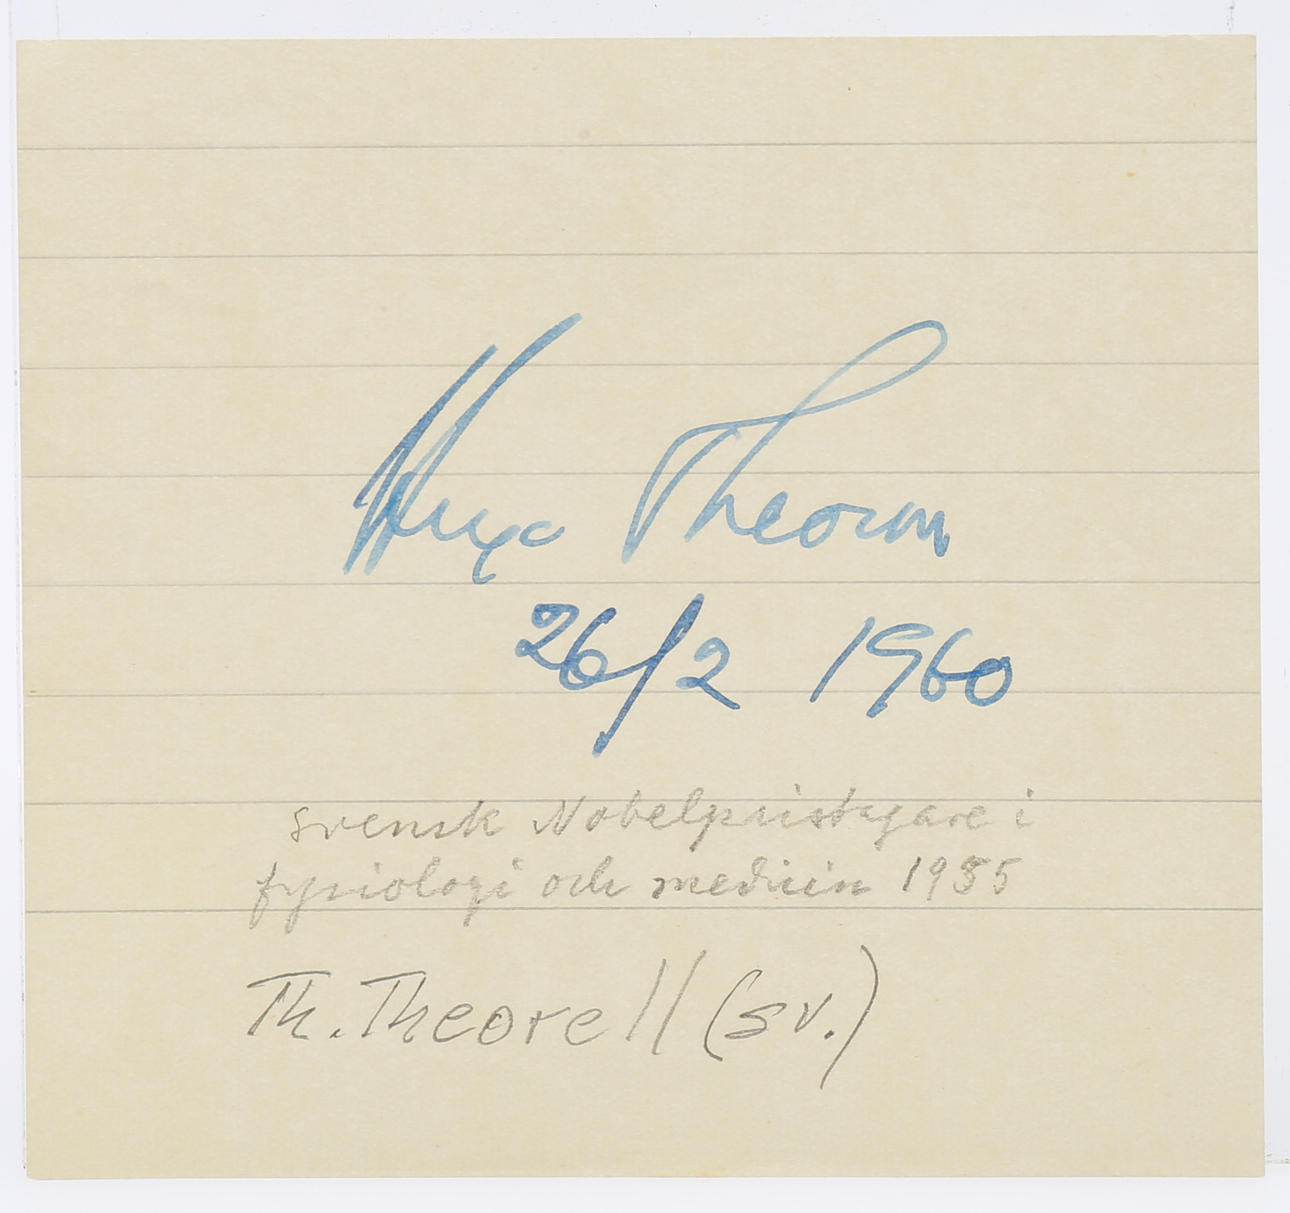 Hugo Theorell
26/2 1960
svensk Nobelpristagare i
fysiologi och medicin 1955
Th. Theorell (sv.)